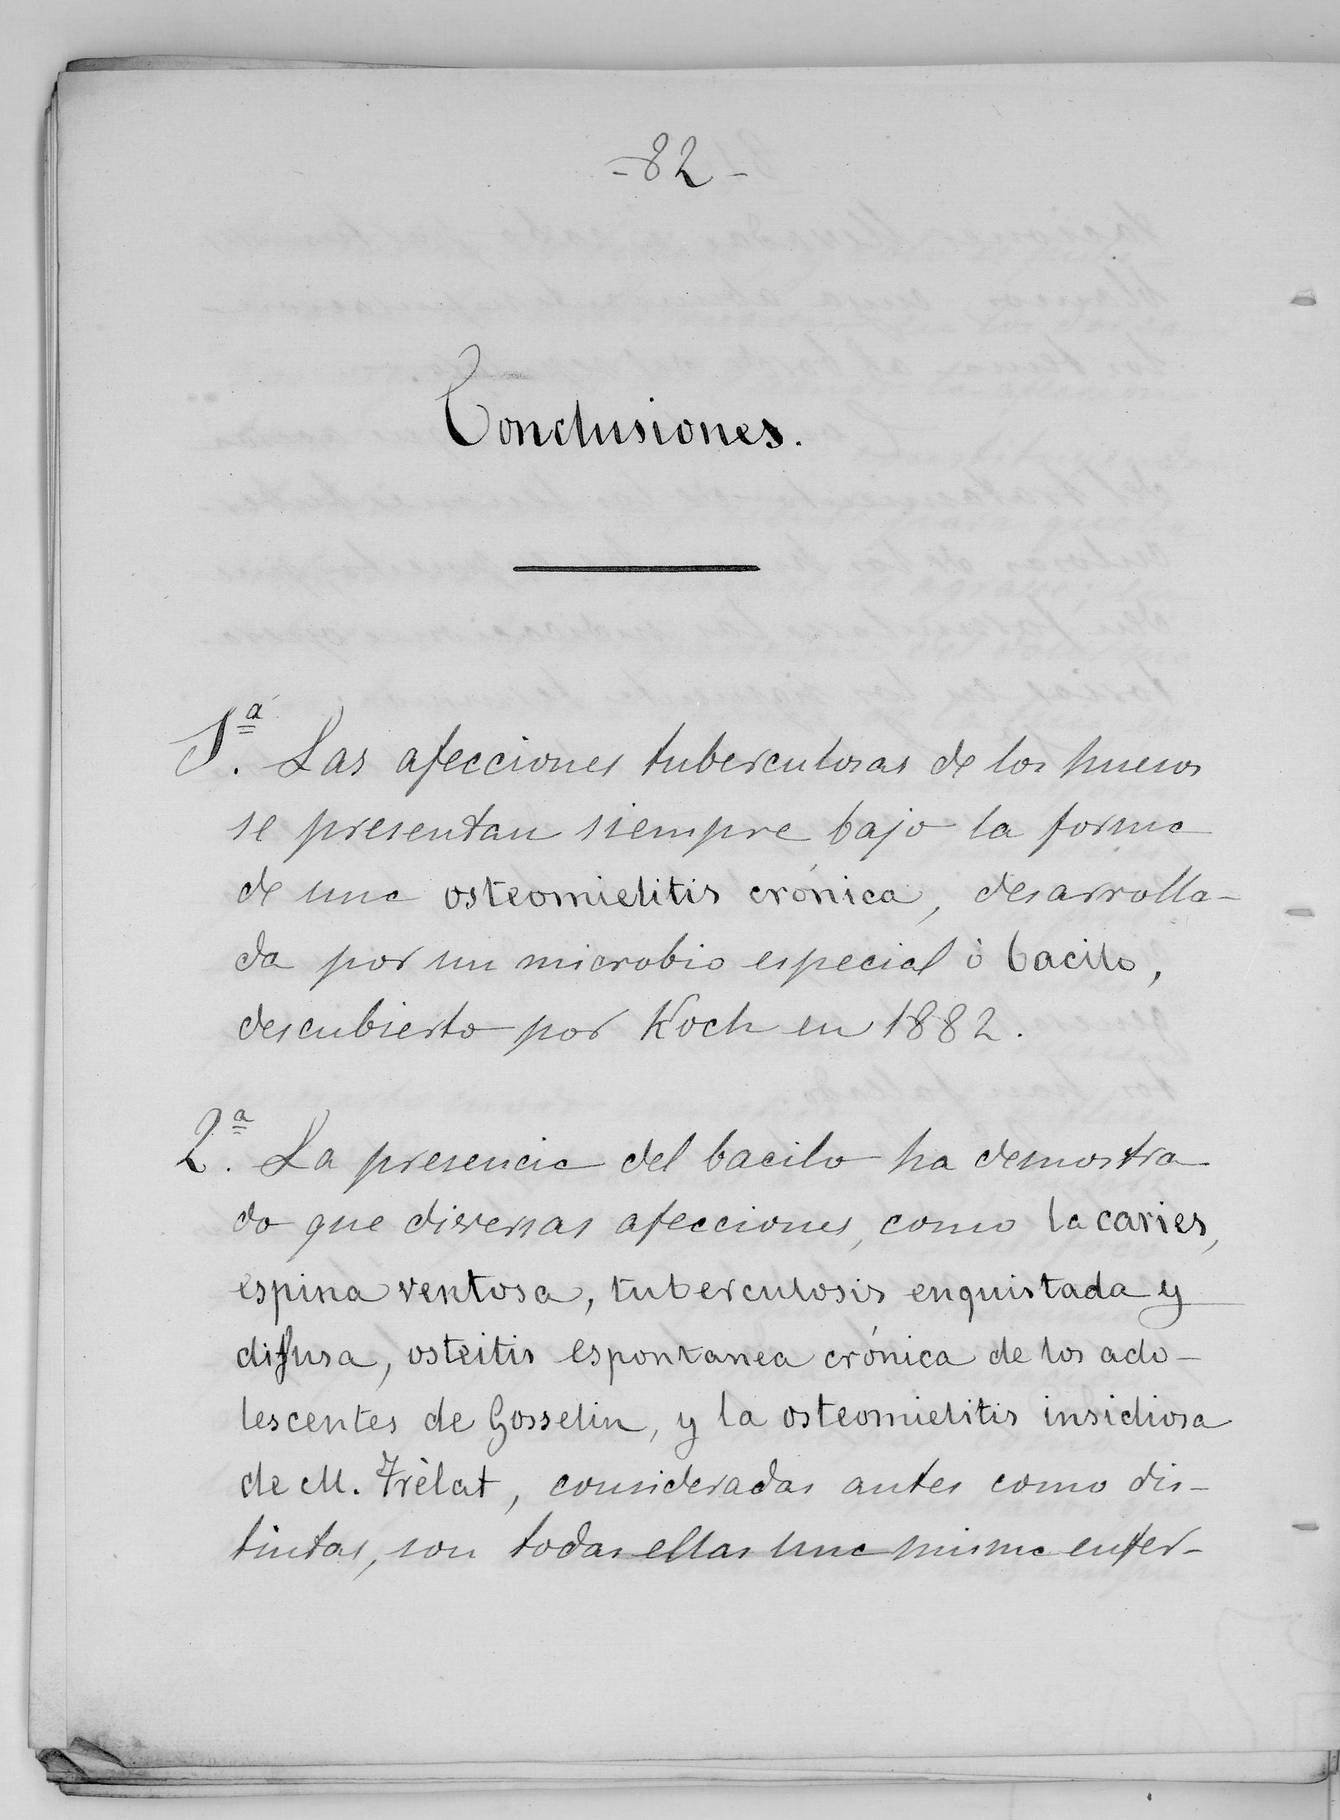 -82-
Conclusiones.
1.ª Las afecciones tuberculosas de los huesos
se presentan siempre bajo la forma
de una osteomielitis crónica, desarrolla-
da por un microbio especial ó bacilo,
descubierto por Koch en 1882.
2.ª La presencia del bacilo ha demostra-
do que diversas afecciones, como la caries,
espina ventosa, tuberculosis enquistada y
difusa, osteitis espontanea crónica de los ado-
lescentes de Gosselin, y la osteomielitis insidiosa
de M. Trèlat, consideradas antes como dis-
tintas, son todas ellas una misma enfer-